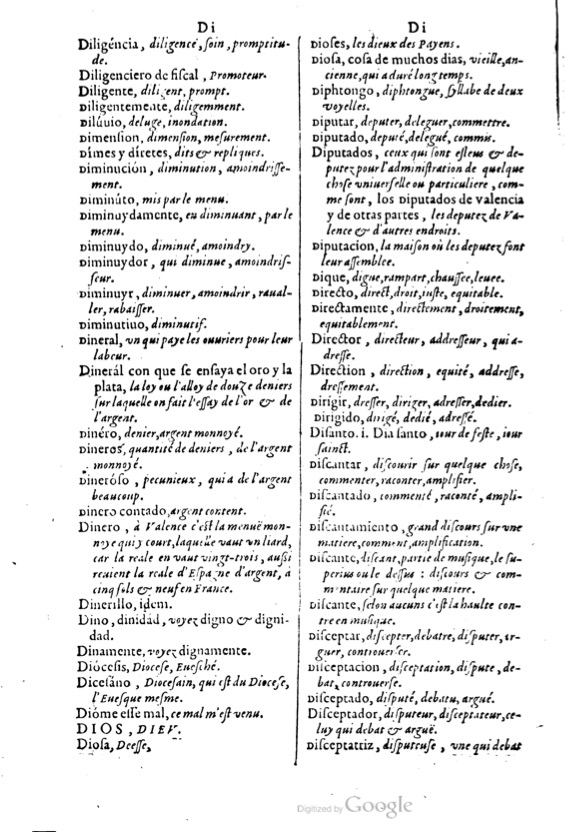 Di
Diligéncia, diligence, soin, promptitu-
de.
Diligenciero de fiscal, Promoteur.
Diligente, diligent, prompt.
Diligentemente, diligemment.
Dilúuio, deluge, inondation.
Dimension, dimension, mesurement.
Dimes y diretes, dits & repliques.
Diminución, diminution, amoindrisse-
ment.
Diminúto, mis par le menu.
Diminuydamente, en diminuant, par le
menu.
Diminuydo, diminué, amoindry.
Diminuydor, qui diminue, amoindris-
seur.
Diminuyr, diminuer, amoindrir, raual-
ler, rabaisser.
Diminutiuo, diminutif.
Dineral, vn qui paye les ouuriers pour leur
labeur.
Dinerál con que se ensaya el oro y la
plata, la loy ou l'alloy de douze deniers
sur laquelle on fait l'essay de l'or & de
l'argent.
Dinéro, denier, argent monnoyé.
Dineros, quantité de deniers, de l'argent
monnoyé.
Dineróso, pecunieux, qui a de l'argent
beaucoup.
Dinero contado, argent content.
Dinero, à Valence c'est la menuë mon-
noye qui y court, laquelle vaut vn liard,
car la reale en vaut vingt-trois, aussi
reuient la reale d'Espagne d'argent, à
cinq sols & neuf en France.
Dinerillo, idem.
Dino, dinidad, voyez digno & digni-
dad.
Dinamente, voyez dignamente.
Diócesis, Diocese, Euesché.
Dicesáno, Diocesain, qui est du Diocese,
l'Euesque mesme.
Dióme esse mal, ce mal m'est venu.
DIOS, DIEV.
Diosa, Deesse,
Di
Dioses, les dieux des Payens.
Diosa, cosa de muchos dias, vieille, an-
cienne, qui a duré long temps.
Diphtongo, diphtongue, syllabe de deux
voyelles.
Diputar, deputer, deleguer, commettre.
Diputado, deputé, delegué, commis.
Diputados, ceux qui sont esleus & de-
putez pour l'administration de quelque
chose vniuerselle ou particuliere, com-
me sont, los Diputados de valencia
y de otras partes, les deputez de Va-
lence & d'autres endroits.
Diputacion, la maison où les deputez font
leur assemblee.
Dique, digue, rampart, chaussee, leuee.
Directo, direct, droit, iuste, equitable.
Directamente, directement, droitement,
equitablement.
Director, directeur, addresseur, qui a-
dresse.
Direction, direction, equité, addresse,
dressement.
Dirigir, dresser, diriger, adresser, dedier.
Dirigido, dirigé, dedié, adressé.
Disanto. i. Dia santo, iour de feste, iour
sainct.
Discantar, discourir sur quelque chose,
commenter, raconter, amplifier.
Discantado, commenté, raconté, ampli-
fié.
Discantamiento, grand discours sur vne
matiere, comment, amplification.
Discante, discant, partie de musique, le su-
perius ou le dessus : discours & com-
mentaire sur quelque matiere.
Discante, selon aucuns c'est la haulte con-
tre en musique.
Disceptar, discepter, debatre, disputer, ar-
guer, controuerser.
Disceptacion, disceptation, dispute, de-
bat, controuerse.
Disceptado, disputé, debatu, argué.
Disceptador, disputeur, disceptateur, ce-
luy qui debat & arguë.
Disceptatriz, disputeuse, vne qui debat
Digitized by Google